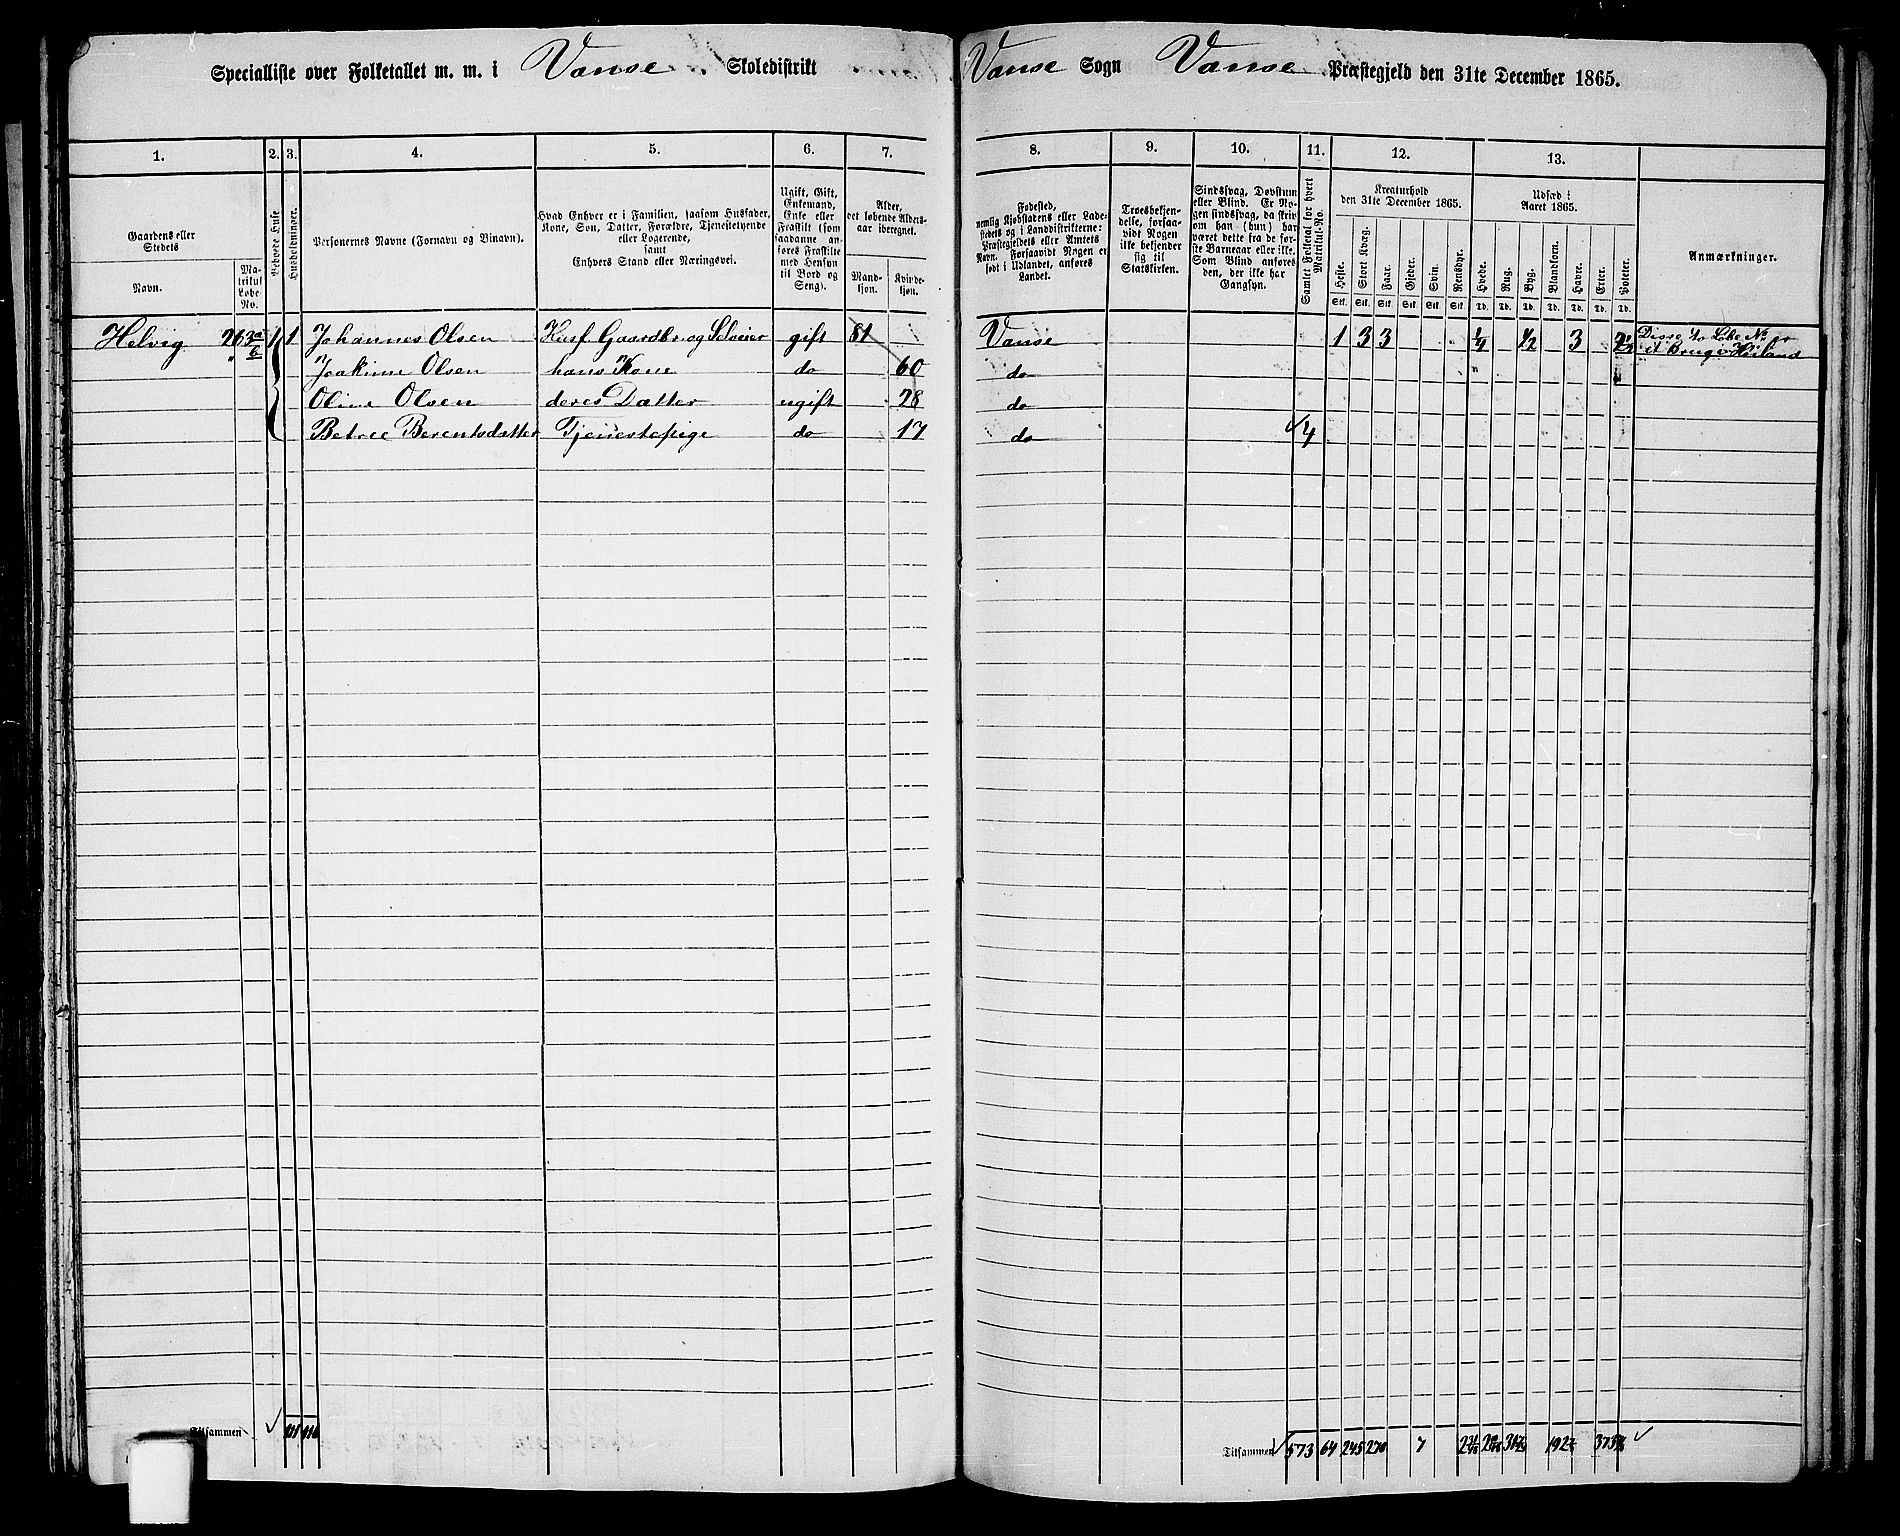 Specialliste over Folketallet m. m. i Vanse Skoledistrikt Vanse Sogn Vanse Præstegjeld den 31te December 1865.
1. 2. 3. 4. 5. 6. 7. 8. 9. 10. 11. 12. 13.
Gaardens eller Stedets
Navn.
Matrikul Løbe-No.
Beboede Huse
Husholdninger.
Personernes Navne (Fornavn og Binavn).
Hvad Enhver er i Familien, saasom Husfader, Kone, Søn, Datter, Forældre, Tjenestetyende eller Logerende,
samt
Enhvers Stand eller Næringsvei.
Ugift, Gift, Enkemand, Enke eller Fraskilt (som saadanne anføres Fraskilte med Hensyn til Bord og Seng).
Alder, det løbende Alders-aar iberegnet.
Mandkjøn.
Kvindekjøn.
Fødested,
nemlig Kjøbstadens eller Ladestedets og i Landdistrikterne: Præstegjeldets eller Amtets Navn. Forsaavidt Nogen er født i Udlandet, anføres Landet.
Troesbekjendelse, forsaavidt Nogen ikke bekjender sig til Statskirken.
Sindssvag, Døvstum eller Blind. Er Nogen sindssvag, da skrives om han (hun) har været dette fra de første Barneaar eller ikke. Som Blind anføres den, der ikke har Gangsyn.
Samlet Folketal for hvert Matrikul-No.
Kreaturhold
den 31te December 1865.
Heste. Stort Kvæg. Faar. Gjeder. Svin. Rensdyr.
Stk. Stk. Stk. Stk. Stk. Stk.
Udsæd i
Aaret 1865.
Hvede. Rug. Byg. Blandkorn. Havre. Erter. Poteter.
Td. Td. Td. Td. Td. Td. Td.
Anmærkninger.
Helvig 26 3 a/b 1 1 Johannes Olsen Husf Gaardbr og Selveier gift 81 Vanse 1 3 3 1/2 3 2 1/2
et Brug
Joakime Olsen hans Kone do 60 do
Oline Olsen deres Datter ugift 28 do
Berentsdatter Tjenestepige do 17 do 4
Tilsammen 116
Tilsammen 573 64 245 270 7